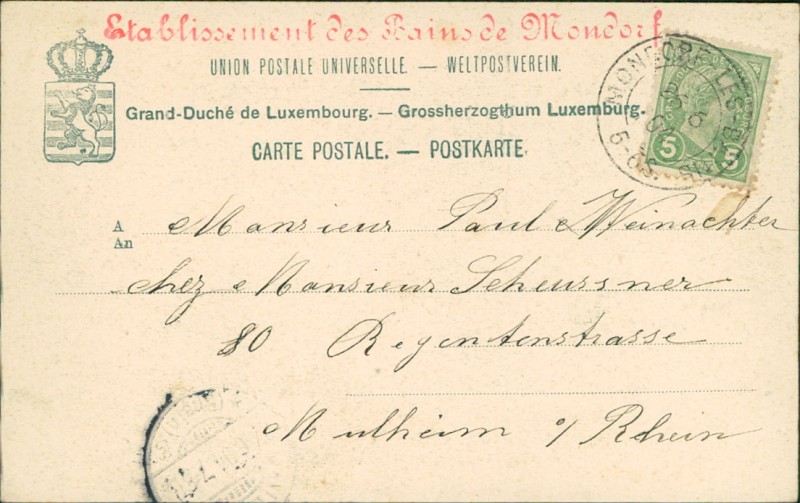 Etablissement des Bains de Mondorf
UNION POSTALE UNIVERSELLE. — WELTPOSTVEREIN.
Grand-Duché de Luxembourg. — Grossherzogthum Luxemburg.
CARTE POSTALE. — POSTKARTE.
MONDORF-LES-BAINS
5 5
5-6S.
A Monsieur Paul Weinachter
An
chez Monsieur Scheussner
80 Regentenstrasse
Mulheim s/ Rhein